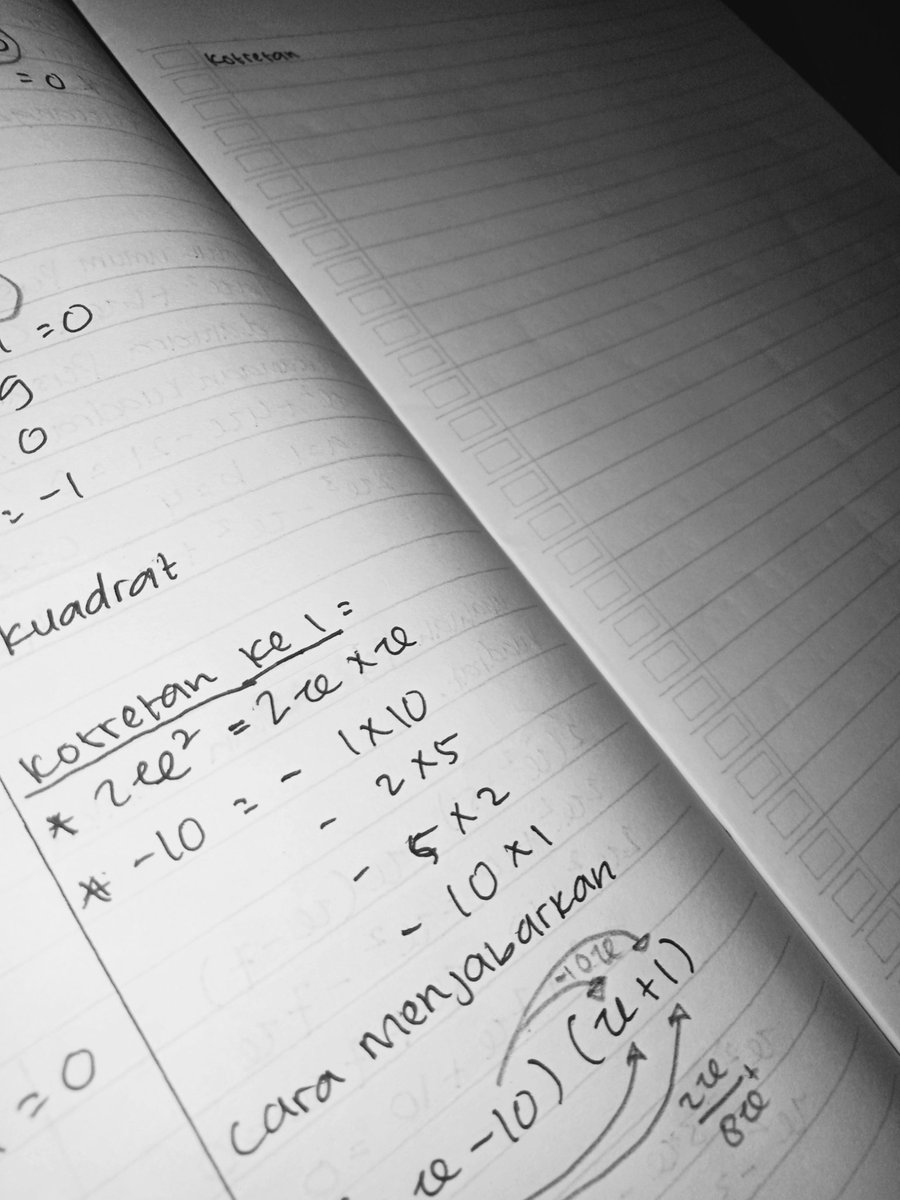 Kotretan
= 0
= 0
9
0
= -1
kuadrat
kotretan ke 1 :
* 2x² = 2x × x
* -10 = - 1 × 10
- 2 × 5
- 5 × 2
- 10 × 1
cara menjabarkan
-10x
x - 10) (x + 1)
2x +
8x
= 0